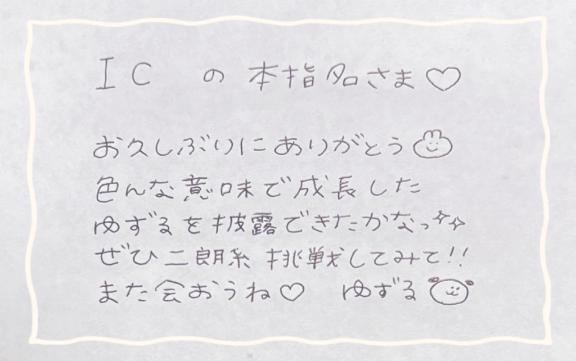 IC の本指名さま♡
お久しぶりにありがとう
色んな意味で成長した
ゆずるを披露できたかなっ✨
ぜひ二朗糸挑戦してみて!!
また会おうね♡ ゆずる